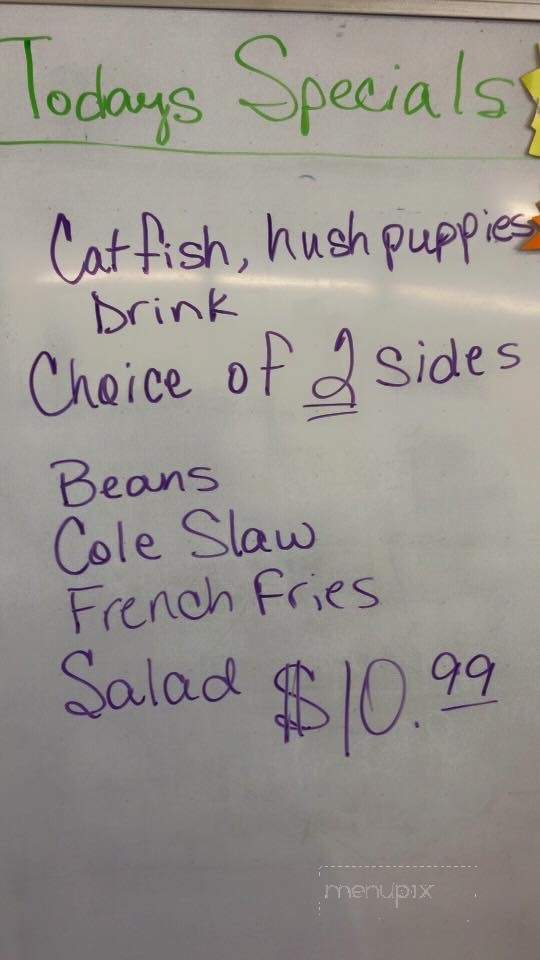 Todays Specials
Catfish, hushpuppies
Drink
Choice of 2 sides
Beans
Cole Slaw
French Fries
Salad $10.99
menupix